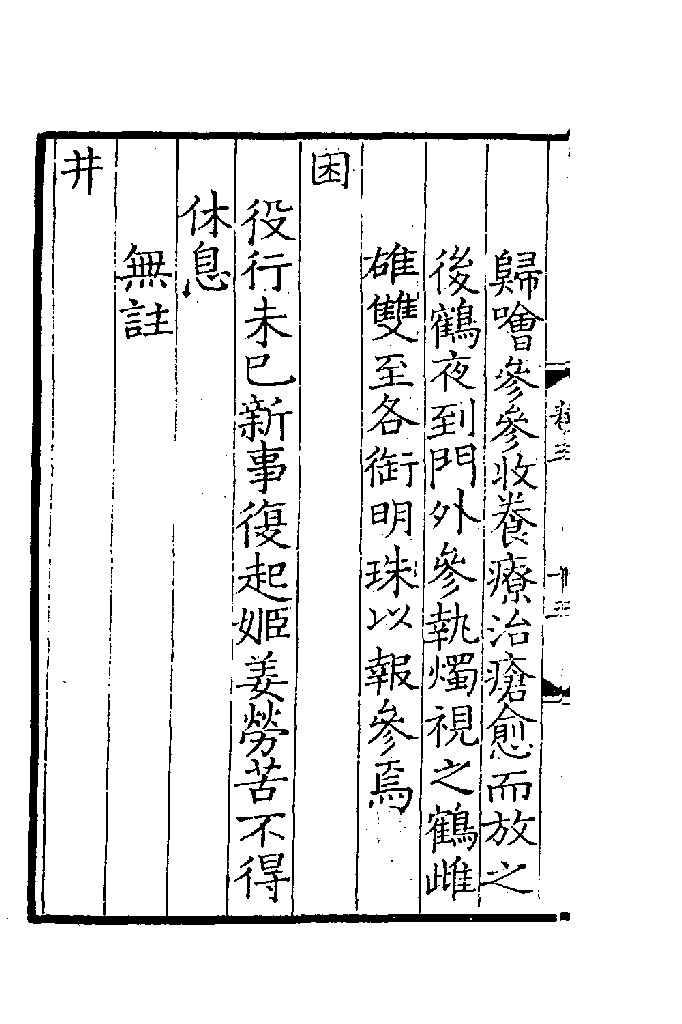 歸噲參參收養療治瘡愈而放之
後鶴夜到門外參執燭視之鶴雌
雄雙至各銜明珠以報參焉
困
役行未已新事復起姬姜勞苦不得
休息
無註
井